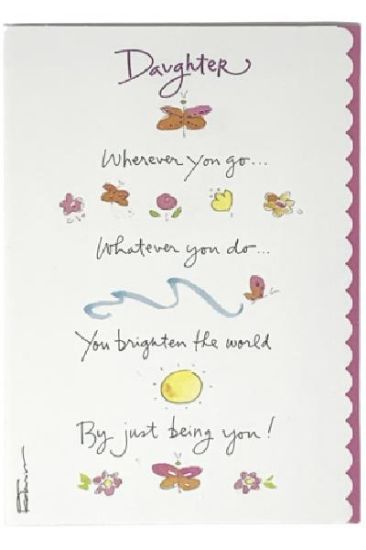 Daughter
Wherever you go...
Whatever you do...
You brighten the world
By just being you!